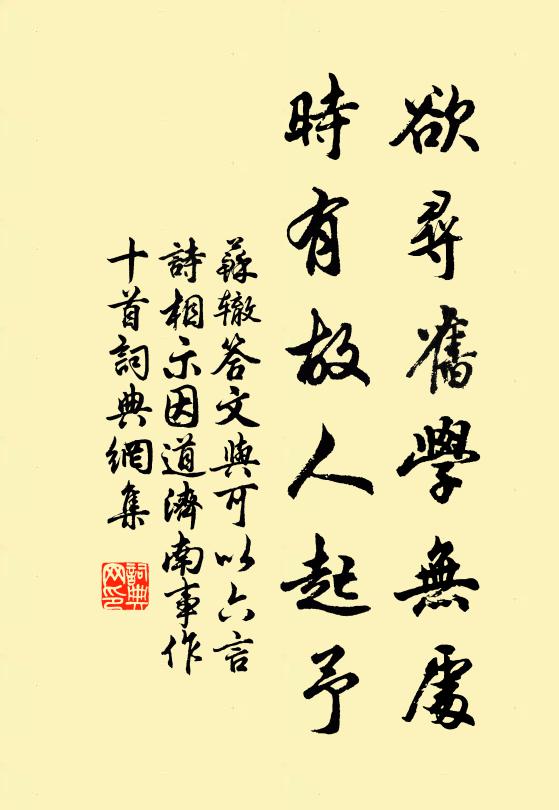 欲尋舊學無處
時有故人起予
蘇轍答文與可以六言
詩相示因道濟南事作
十首詞典網集
詞典
网印